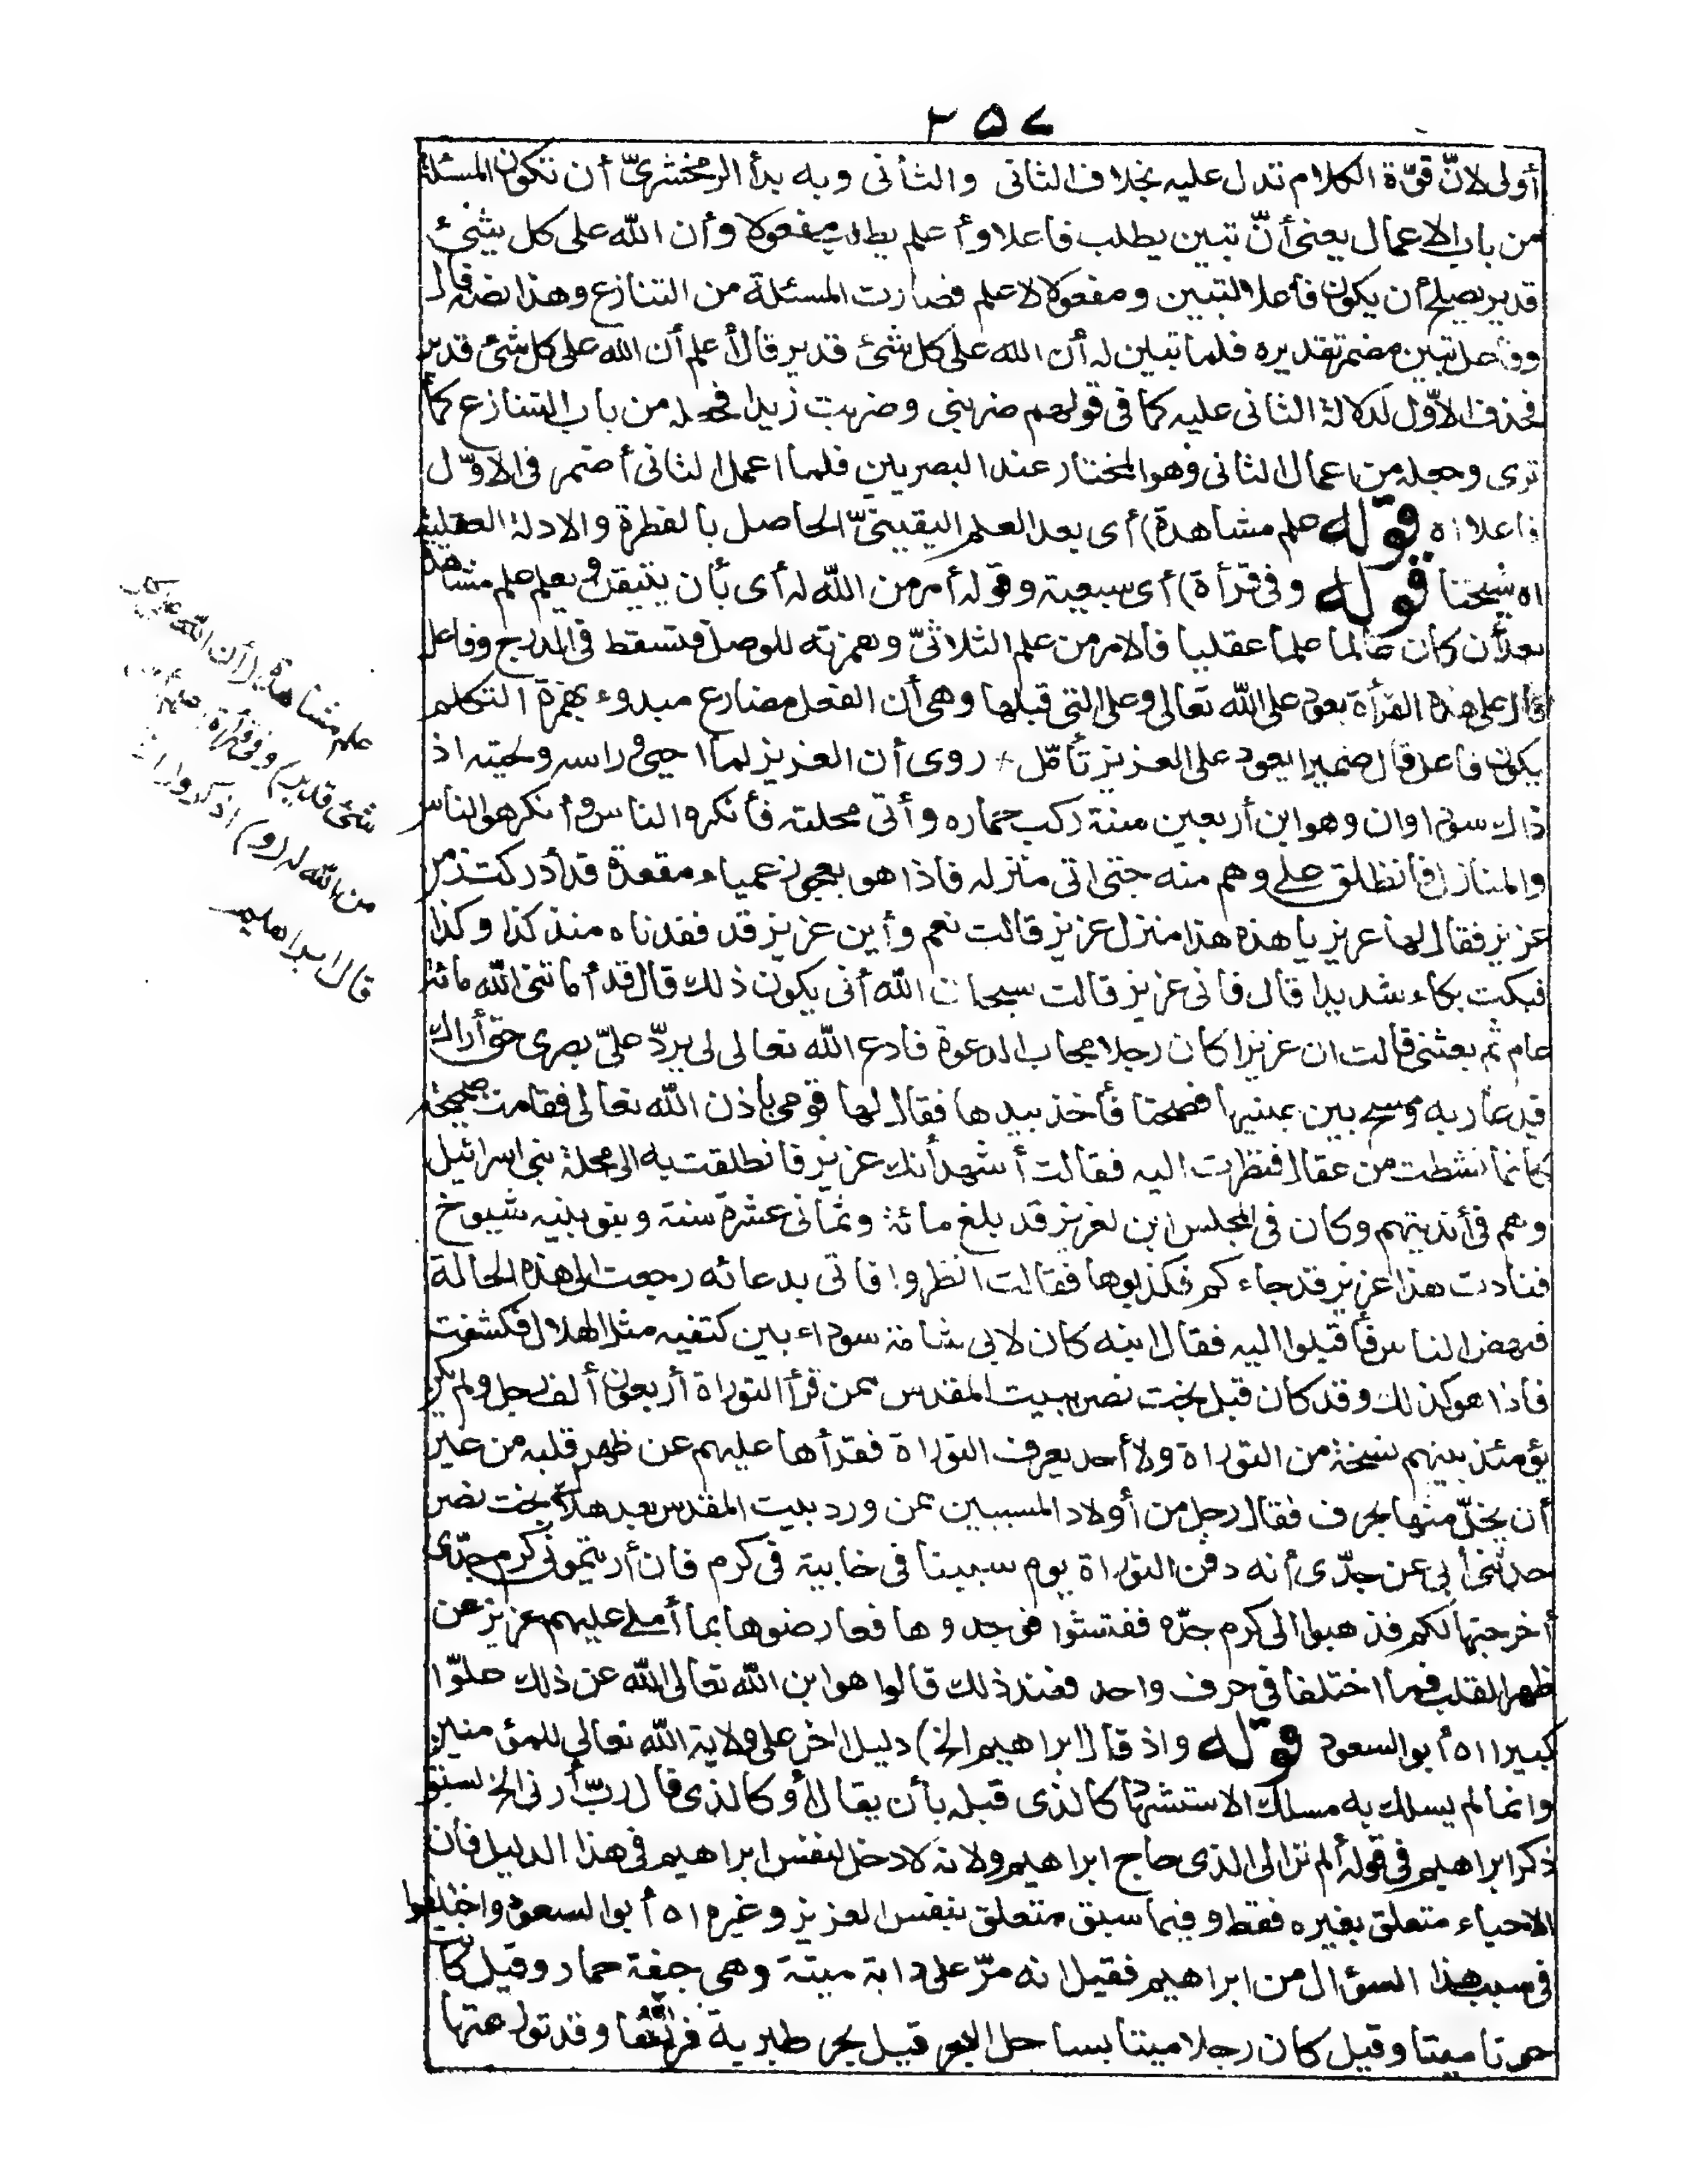 ٢٥٧
أولى لانّ قوّة الكلام تدل عليه بخلاف الثانى والثانى وبه بدأ الزمخشرىّ أن تكون المسئلة
من باب الاعمال يعنى أنّ تبين يطلب فاعلا وأعلم يطلب مفعولا وأن الله على كل شئ
قدير يصلح أن يكون فاعلا لتبين ومفعولا لاعلم فصارت المسئلة من التنازع وهذا نصه قال
وفاعل تبين مضمر تقديره فلما تبين له أن الله على كل شئ قدير قال أعلم أن الله على كل شئ قدير
فحذف الاوّل لدلالة الثانى عليه كما فى قولهم ضربنى وضربت زيدا فجعله من باب التنازع كما
ترى وجعله من اعمال الثانى وهو المختار عند البصريين فلما اعمل الثانى أضمر فى الاوّل
فاعلا اه قوله علم مشاهدة) أى بعد العلم اليقينىّ الحاصل بالفطرة والادلة العقلية
اه شيخنا قوله وفى قرأة) أى سبعية وقوله أمر من الله له أى بأن يتيقن ويعلم علم مشاهدة
بعد أن كان عالما علما عقليا فالامر من علم الثلاثىّ وهمزته للوصل فتسقط فى الدرج وفاعل
قال على هذه القرأة يعود على الله تعالى وعلى التى قبلها وهى أن الفعل مضارع مبدوء بهمزة التكلم
يكون فاعل قال ضميرا يعود على العزيز تأمّل روى أن العزيز لما احيى وراسه ولحيته اذ
ذاك سوداوان وهو ابن أربعين سنة ركب حماره وأتى محلته فأنكره الناس وأنكر هو الناس
والمنازل فانطلق على وهم منه حتى اتى منزله فاذا هو بعجوز عمياء مقعدة قد أدركت زمن
عزيز فقال لها عزيز يا هذه هذا منزل عزيز قالت نعم وأين عزيز قد فقدناه منذ كذا وكذا
فبكت بكاء شديدا قال فانى عزيز قالت سبحان الله أنى يكون ذلك قال قد أماتنى الله مائة
عام ثم بعثنى قالت ان عزيزا كان رجلا مجاب الدعوة فادع الله تعالى لى يردّ علىّ بصرى حتى أراك
فدعا ربه ومسح بين عينيها فصحتا فأخذ بيدها فقال لها قومى باذن الله تعالى فقامت صحيحة
كأنما نشطت من عقال فنظرت اليه فقالت أشهد أنك عزيز فانطلقت به الى محلة بنى اسرائيل
وهم فى أنديتهم وكان فى المجلس ابن لعزيز قد بلغ مائة وثمانى عشرة سنة وبنو بنيه شيوخ
فنادت هذا عزيز قد جاءكم فكذبوها فقالت انظروا فانى بدعائه رجعت الى هذه الحالة
فنهض الناس فأقبلوا اليه فقال ابنه كان لابى شامة سوداء بين كتفيه مثل الهلال فكشفت
فاذا هو كذلك وقد كان قبل بخت نصر ببيت المقدس ممن قرأ التوراة أربعون ألف رجل ولم يكن
يؤمئذ بينهم نسخة من التوراة ولا أحد يعرف التوراة فقرأها عليهم عن ظهر قلبه من غير
أن يخلّ منها بحرف فقال رجل من أولاد المسبيين ممن ورد بيت المقدس بعد هلاك بخت نصر
حدثنى أبى عن جدّى أنه دفن التوراة يوم سبينا فى خابية فى كرم فان أريتمونى كرم جدّى
أخرجتها لكم فذهبوا الى كرم جدّه ففتشوا فوجدوها فعارضوها بما أملى عليهم عزيز عن
ظهر القلب فما اختلفا فى حرف واحد فعند ذلك قالوا هو ابن الله تعالى الله عن ذلك علوّا
كبيرا اه أبو السعود قوله واذ قال ابراهيم الخ) دليل اخر على ولاية الله تعالى للمؤمنين
وانما لم يسلك به مسلك الاستشهاد كالذى قبله بأن يقال أو كالذى قال ربّ أرنى الخ لسبق
ذكر ابراهيم فى قوله ألم تر الى الذى حاج ابراهيم ولانه لا دخل لنفس ابراهيم فى هذا الدليل فان
الاحياء متعلق بغيره فقط وفيما سبق متعلق بنفس العزيز وغيره اه أبو السعود واختلفوا
فى سبب هذا السؤال من ابراهيم فقيل انه مرّ على دابة ميتة وهى جيفة حمار وقيل كانت
حوتا ميتا وقيل كان رجلا ميتا بساحل البحر قيل بحر طبرية فرآها وقد توزعتها
علم مشاهدة (أن الله على كل
شئ قدير) وفى قرأة
من الله له (و) اذكر
قال ابراهيم